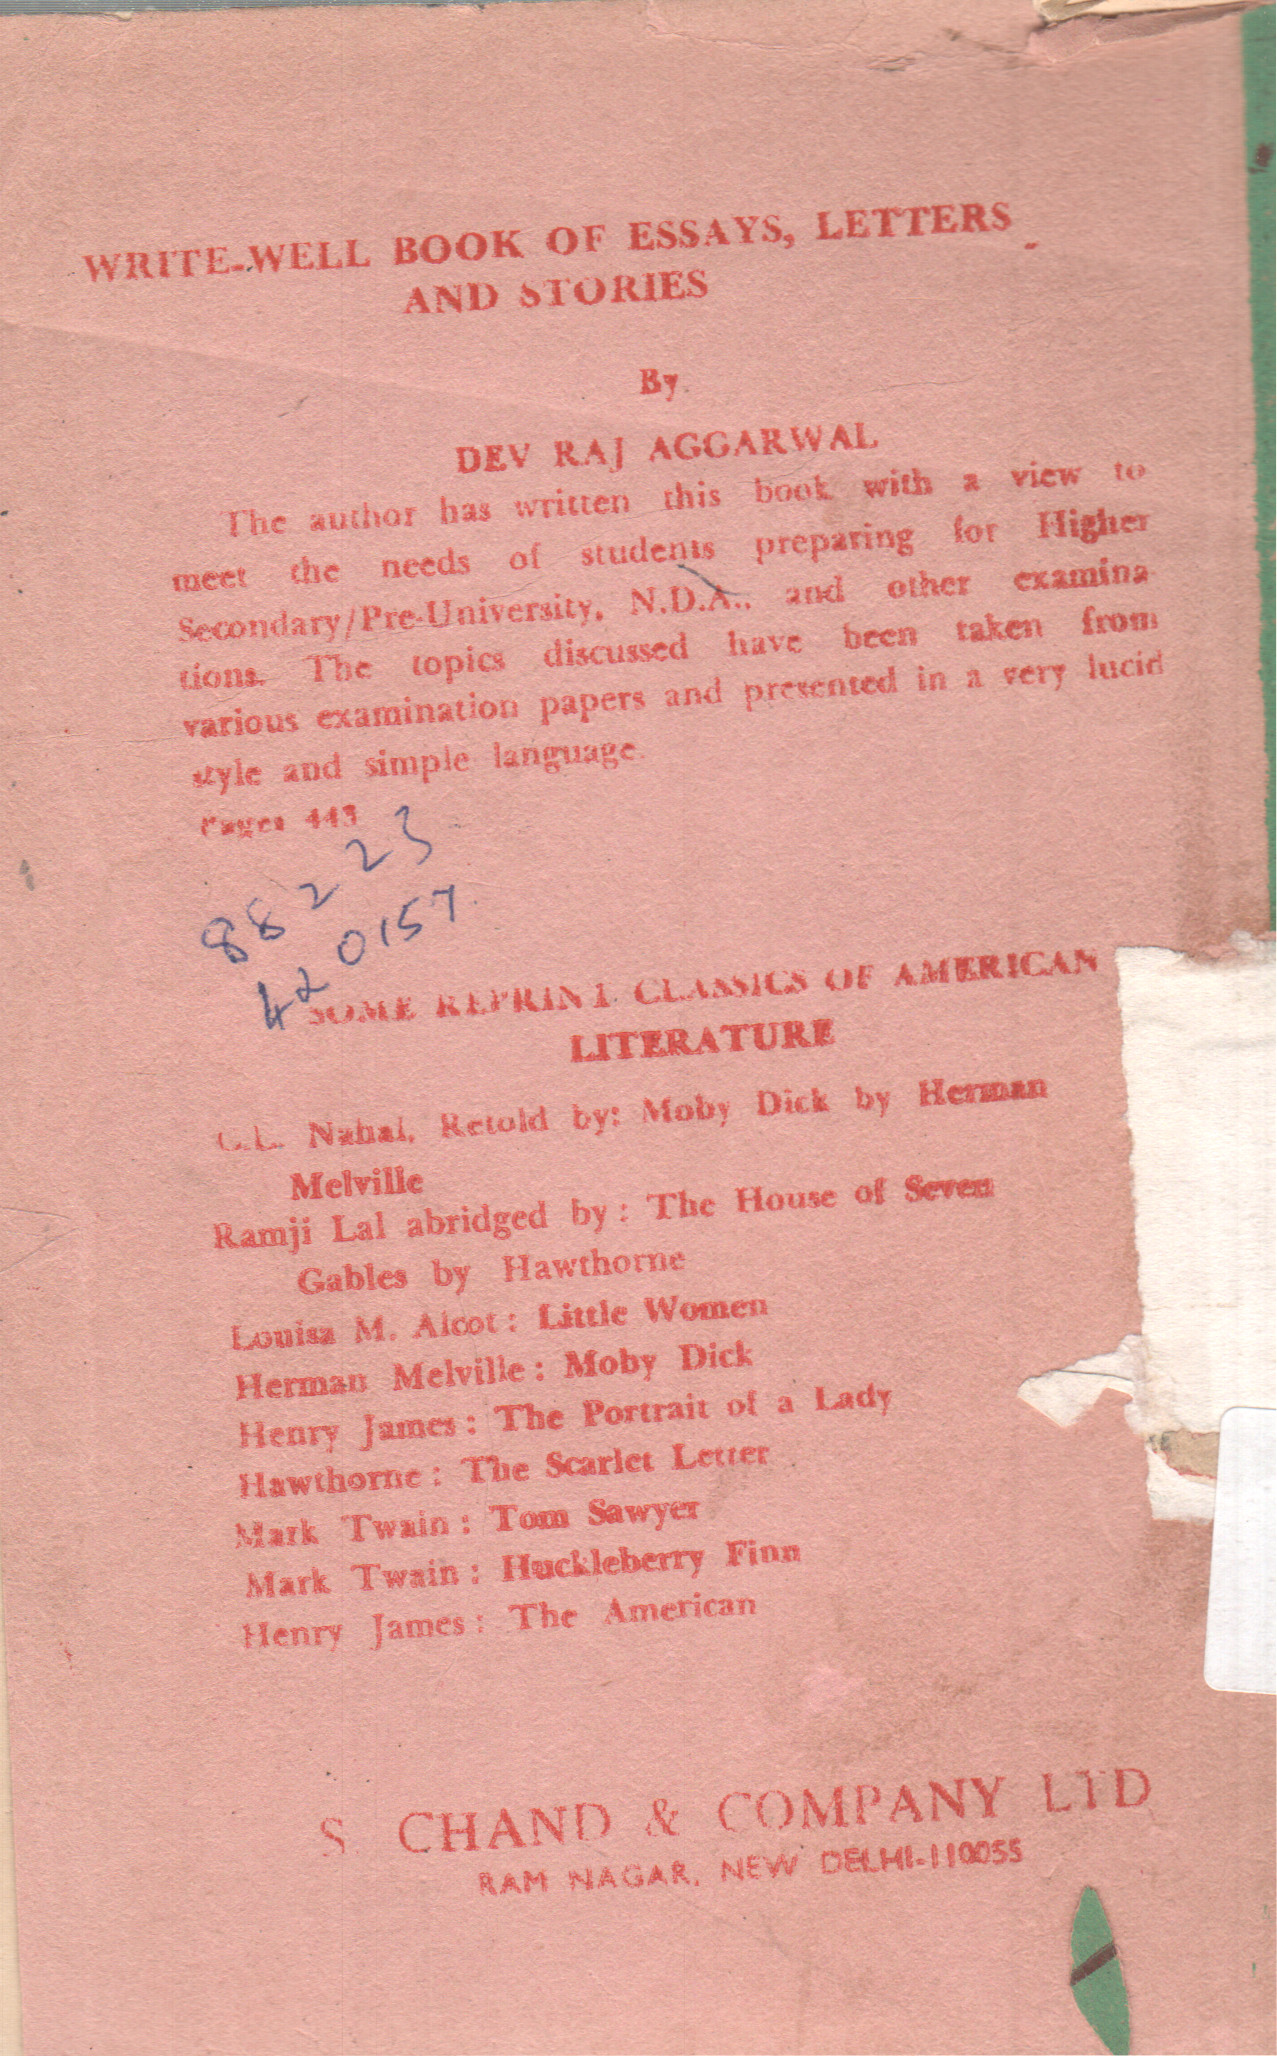 WRITE-WELL BOOK OF ESSAYS, LETTERS
AND STORIES
By
DEV RAJ AGGARWAL
The author has written this book with a view to
meet the needs of students preparing for Higher
Secondary/Pre-University, N.D.A., and other examina-
tions. The topics discussed have been taken from
various examination papers and presented in a very lucid
style and simple language.
Pages 443
88 2 23
42 0157
SOME REPRINT CLASSICS OF AMERICAN
LITERATURE
C.L. Nahal, Retold by: Moby Dick by Herman
Melville
Ramji Lal abridged by : The House of Seven
Gables by Hawthorne
Louisa M. Alcot : Little Women
Herman Melville : Moby Dick
Henry James : The Portrait of a Lady
Hawthorne : The Scarlet Letter
Mark Twain : Tom Sawyer
Mark Twain : Huckleberry Finn
Henry James : The American
S. CHAND & COMPANY LTD
RAM NAGAR, NEW DELHI-110055